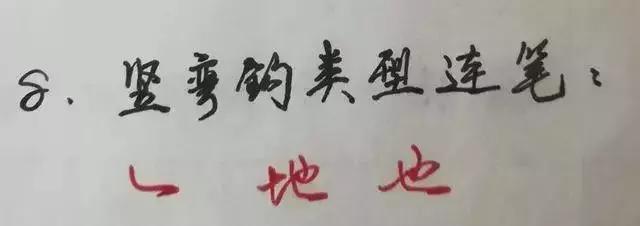 8. 竖弯钩类型连笔：
㇄ 地 也